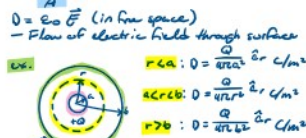 A
D = ε₀ E⃗ (in free space)
– Flow of electric field through surface
ex.
r<a : D = Q/4πa² âr C/m²
a<r<b : D = Q/4πr² âr C/m²
r>b : D = Q/4πb² âr C/m²
r
a
b
+Q